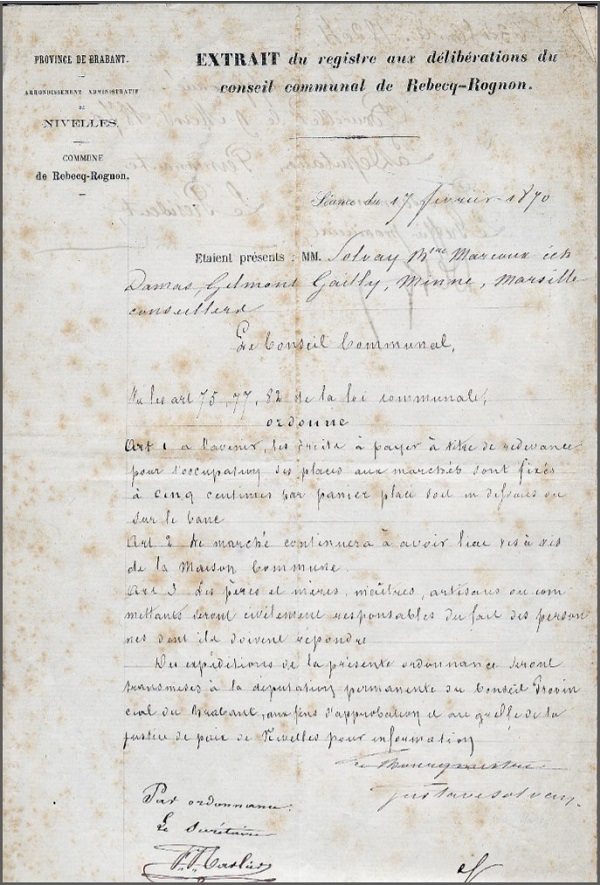 PROVINCE DE BRABANT.
ARRONDISSEMENT ADMINISTRATIF
DE
NIVELLES.
COMMUNE
de Rebecq-Rognon.
EXTRAIT du registre aux délibérations du
conseil communal de Rebecq-Rognon.
Séance du 17 février 1870
Etaient présents : MM. Solvay Marcoux éch
Damas, Gilmont Gailly, Minne, Marsille
conseillers
Le Conseil Communal,
Vu les art 75, 77, 82 de la loi communale,
ordonne
Art 1 a l'avenir, les droits à payer à titre de redevance
pour l'occupation des places aux marchés sont fixés
à cinq centimes par panier placé soit en dessous ou
sur le banc
Art 2 Le marché continuera à avoir lieu vis à vis
de la Maison Commune.
Art 3 Les pères et mères, maîtres, artisans ou com
mettants seront civilement responsables du fait des person
nes dont ils doivent répondre
Des expéditions de la présente ordonnance seront
transmises à la députation permanente du Conseil Provin
cial du Brabant, aux fins d'approbation et au greffe de la
justice de paix de Nivelles pour information
Le Bourgmestre
Gustave Solvay
Par ordonnance:
Le Secrétaire